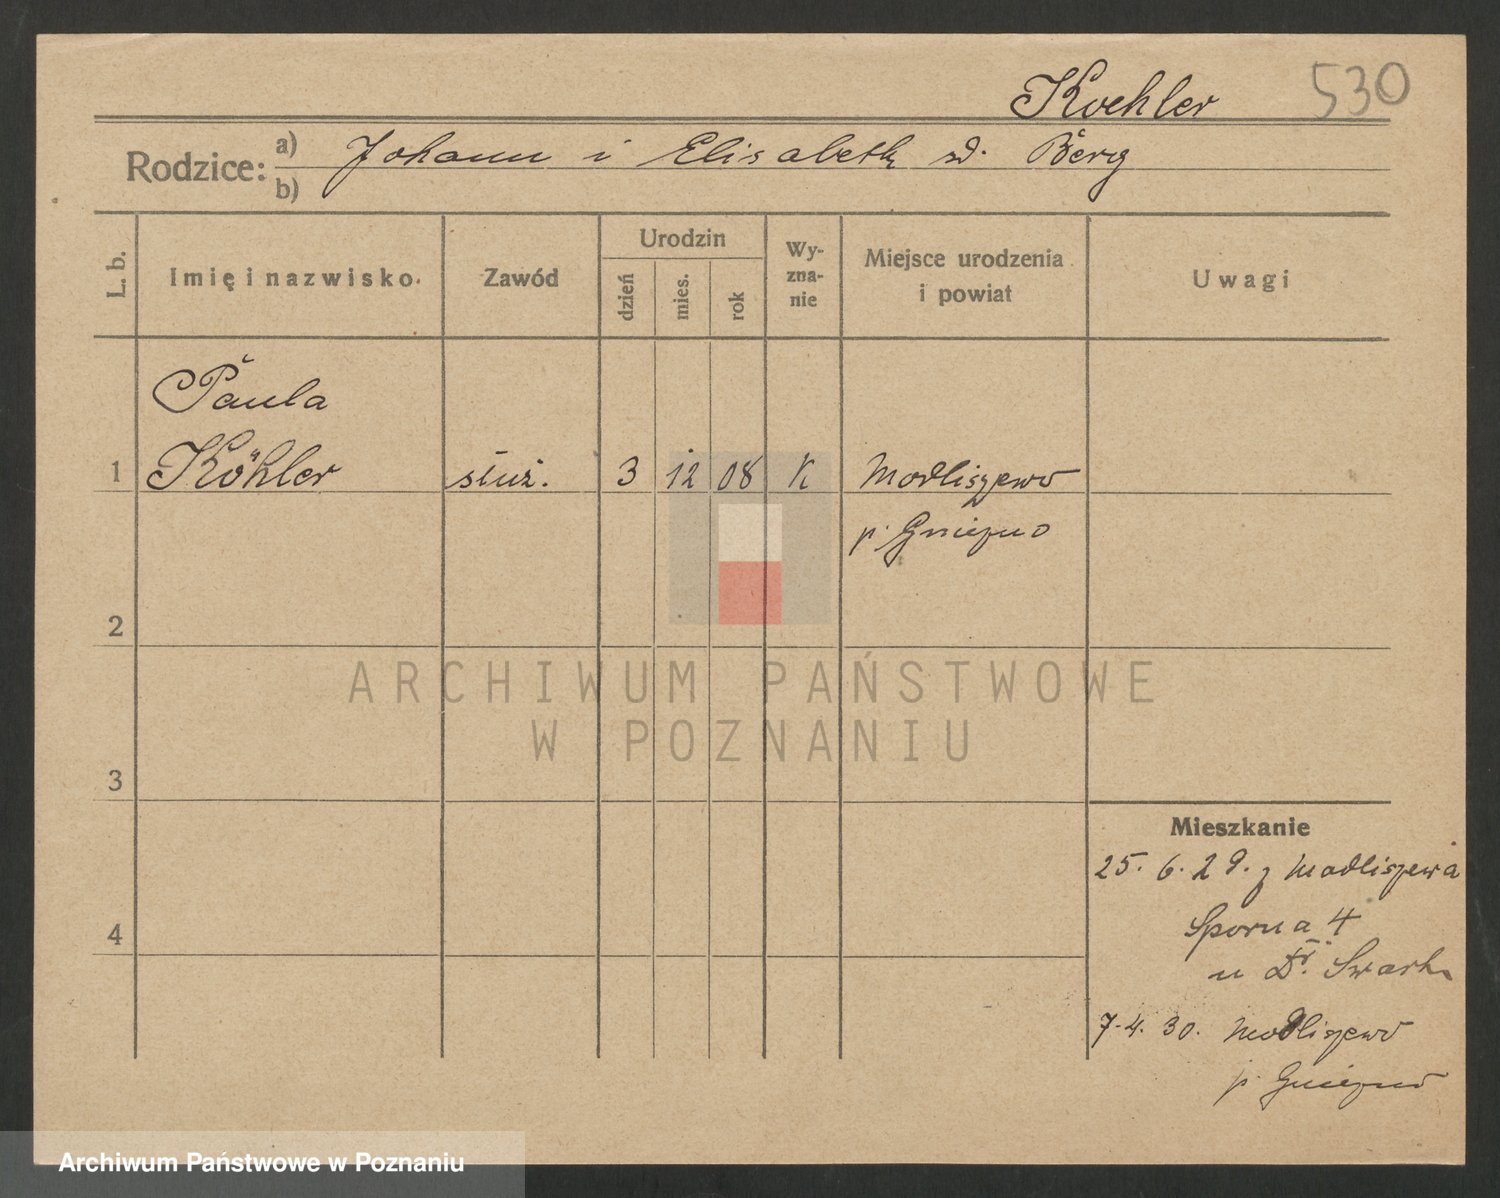 Koehler 530
Rodzice: a) Johann i Elisabeth zd. Berg
b)
L. b. Imię i nazwisko. Zawód Urodzin dzień mies. rok Wyzna-nie Miejsce urodzenia i powiat Uwagi
Paula
1 Köhler służ. 3 12 08 K Modliszewo
p. Gniezno
2
3
4
Mieszkanie
25. 6. 29. z Modliszewa
Sporna 4
u Dr.
7. 4. 30. Modliszewo
p. Gniezno
ARCHIWUM PAŃSTWOWE
W POZNANIU
Archiwum Państwowe w Poznaniu